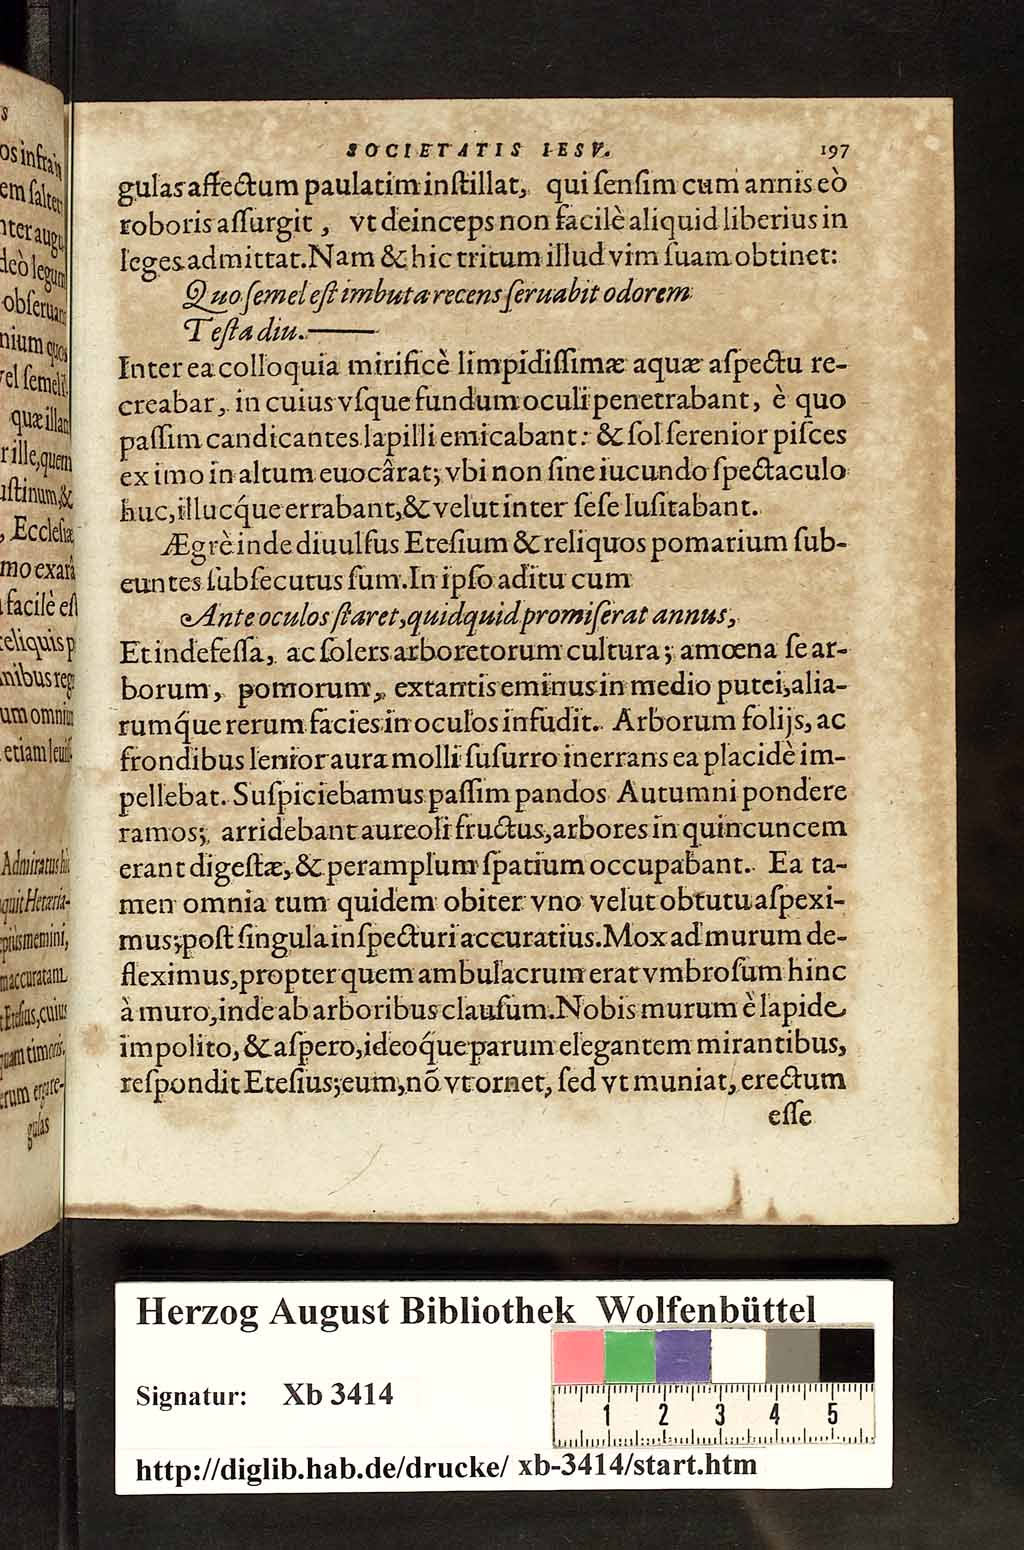 SOCIETATIS IESV. 197
gulas affectum paulatim inſtillat, qui ſenſim cum annis eò
roboris aſſurgit, vt deinceps non facilè aliquid liberius in
leges admittat. Nam & hic tritum illud vim ſuam obtinet:
Quo ſemel eſt imbuta recens ſeruabit odorem
Teſta diu.———
Inter ea colloquia mirificè limpidiſſimæ aquæ aſpectu re-
creabar, in cuius vſque fundum oculi penetrabant, è quo
paſſim candicantes lapilli emicabant: & ſol ſerenior piſces
ex imo in altum euocârat; vbi non ſine iucundo ſpectaculo
huc, illucq́ue errabant, & velut inter ſeſe luſitabant.
Ægrè inde diuulſus Eteſium & reliquos pomarium ſub-
euntes ſubſecutus ſum. In ipſo aditu cum
Ante oculos ſtaret, quidquid promiſerat annus,
Et indefeſſa, ac ſolers arboretorum cultura; amœna ſe ar-
borum, pomorum, extantis eminus in medio putei, alia-
rumq́ue rerum facies in oculos infudit. Arborum folijs, ac
frondibus lenior aura molli ſuſurro inerrans ea placidè im-
pellebat. Suſpiciebamus paſſim pandos Autumni pondere
ramos; arridebant aureoli fructus, arbores in quincuncem
erant digeſtæ, & peramplum ſpatium occupabant. Ea ta-
men omnia tum quidem obiter vno velut obtutu aſpexi-
mus; poſt ſingula inſpecturi accuratius. Mox ad murum de-
fleximus, propter quem ambulacrum erat vmbroſum hinc
à muro, inde ab arboribus clauſum. Nobis murum è lapide
impolito, & aſpero, ideoq́ue parum elegantem mirantibus,
reſpondit Eteſius; eum, nõ vt ornet, ſed vt muniat, erectum
eſſe
s
em ſalter
obſeruan
nium quos
vel ſemel
quæ illan
r ille, quem
uſtinum, &
, Eccleſiæ
mo exarâ
facilè eſt
reliquis p
um omniu
Admiratus
quit Hetæria-
maccuratam
Eteſius, cuius
quam timoris.
gulas
Herzog August Bibliothek Wolfenbüttel
Signatur: Xb 3414
1 2 3 4 5
http://diglib.hab.de/drucke/ xb-3414/start.htm